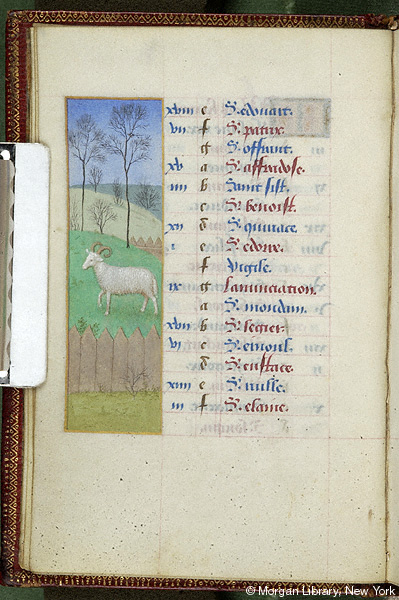 xviii e S. edouart.
vii f S. patrix.
g S. offrant.
xv a S. affrodose.
iiii b Saint sist.
c S. benoist.
xii d S. quiriace.
i e S. edore.
f Vigile.
ix g Lanunciation.
a S. mondain.
xvii b S. legier.
vi c S. ernoul.
d S. eustace.
xiiii e S. nulle.
iii f S. elaine.
© Morgan Library, New York